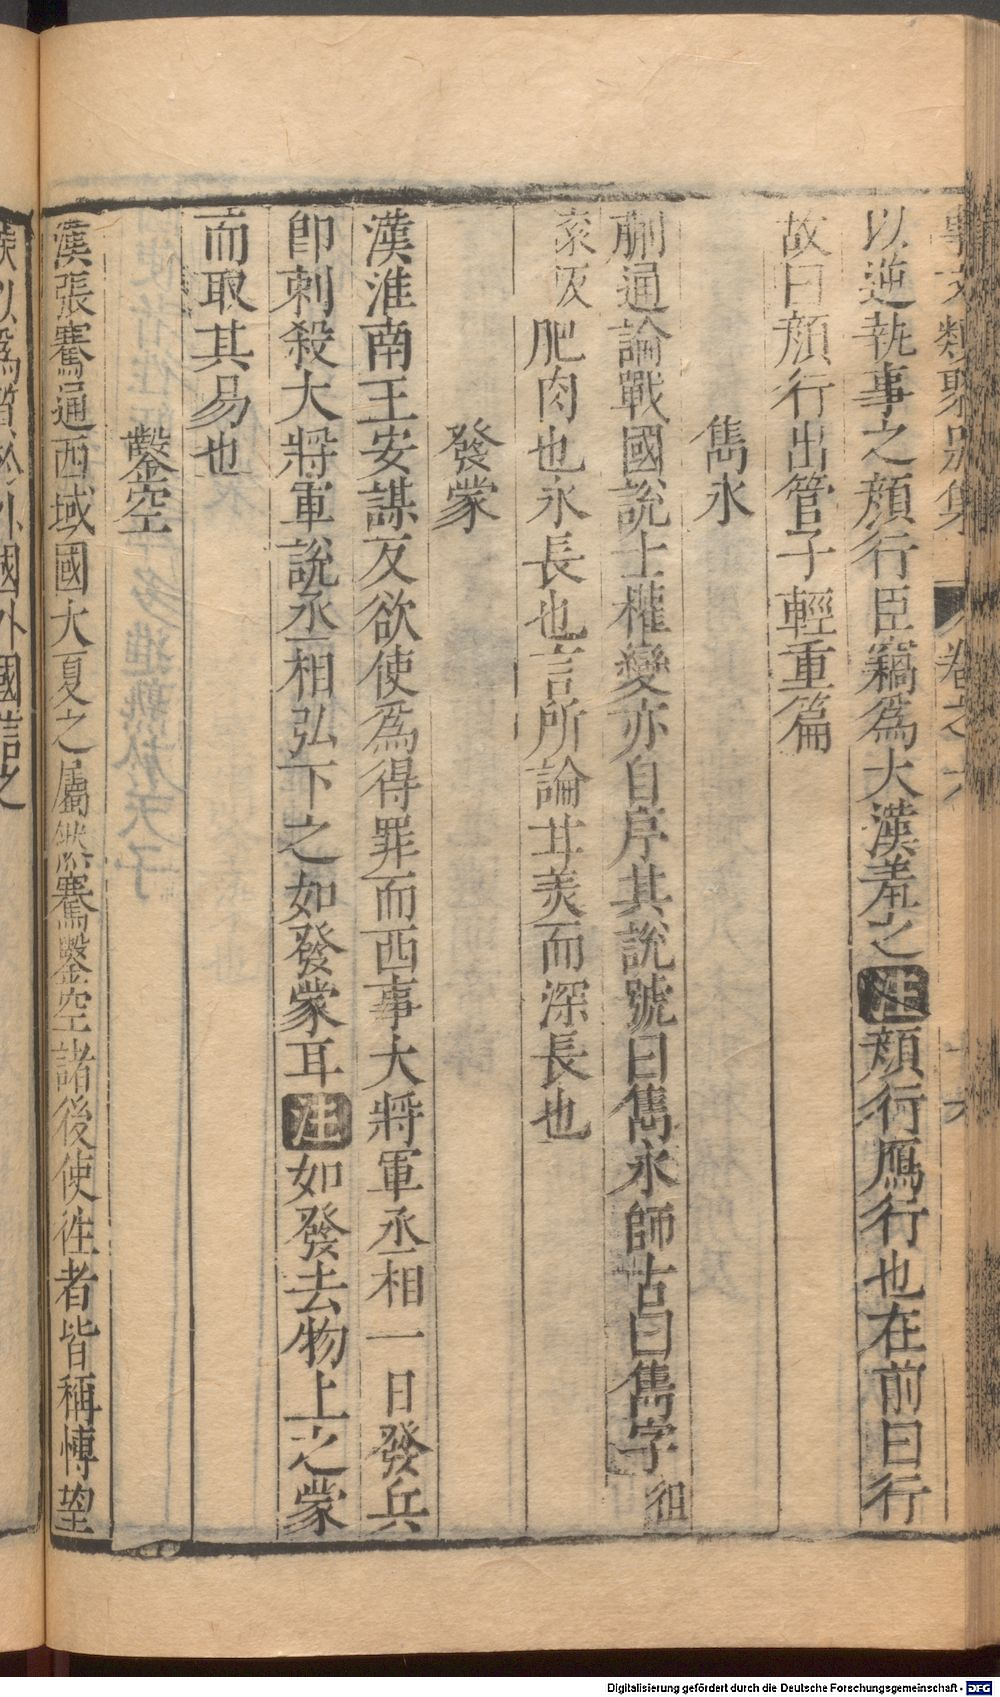 事文類聚別集 卷之六 十六
以逆執事之顔行臣竊爲大漢羞之注顔行鴈行也在前曰行
故曰顔行出管子輕重篇
雋永
蒯通論戰國說士權變亦自序其說號曰雋永師古曰雋字徂
兖仮肥肉也永長也言所論甘美而深長也
發蒙
漢淮南王安謀反欲使爲得罪而西事大將軍丞相一日發兵
卽刺殺大將軍說丞相弘下之如發蒙耳注如發去物上之蒙
而取其易也
鑿空
漢張騫通西域國大夏之屬然騫鑿空諸後使往者皆稱博望
侯以爲質於外國外國信之
Digitalisierung gefördert durch die Deutsche Forschungsgemeinschaft - DFG